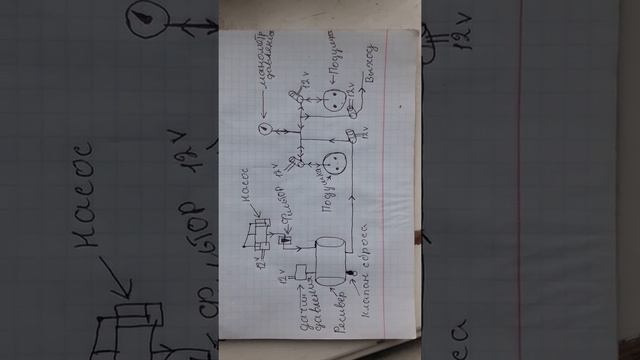 манометр
давления
12v
Подушка
Выход
12v
12v
12v
Подушка
Насос
12v
Фильтр
12v
датчик
давления
Ресивер
Клапан сброса